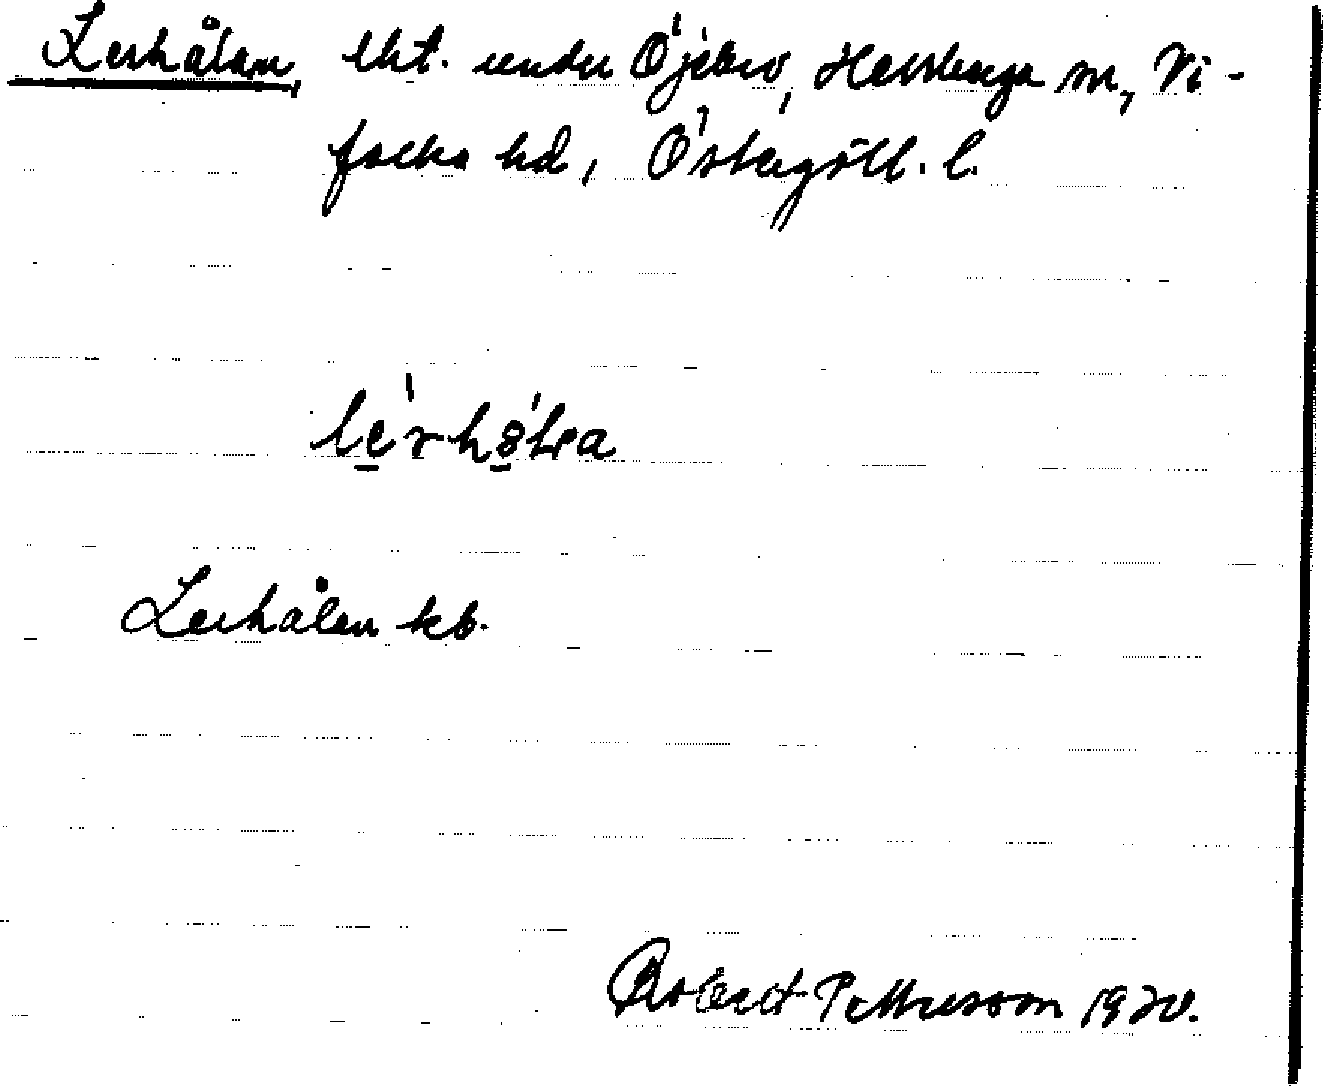 Lerhålan, lht. under Öjebro, Herrberga sn, Vi-
folka hd, Östergötl. l.
Lerhålan kb.
Robert Pettersson 1920.